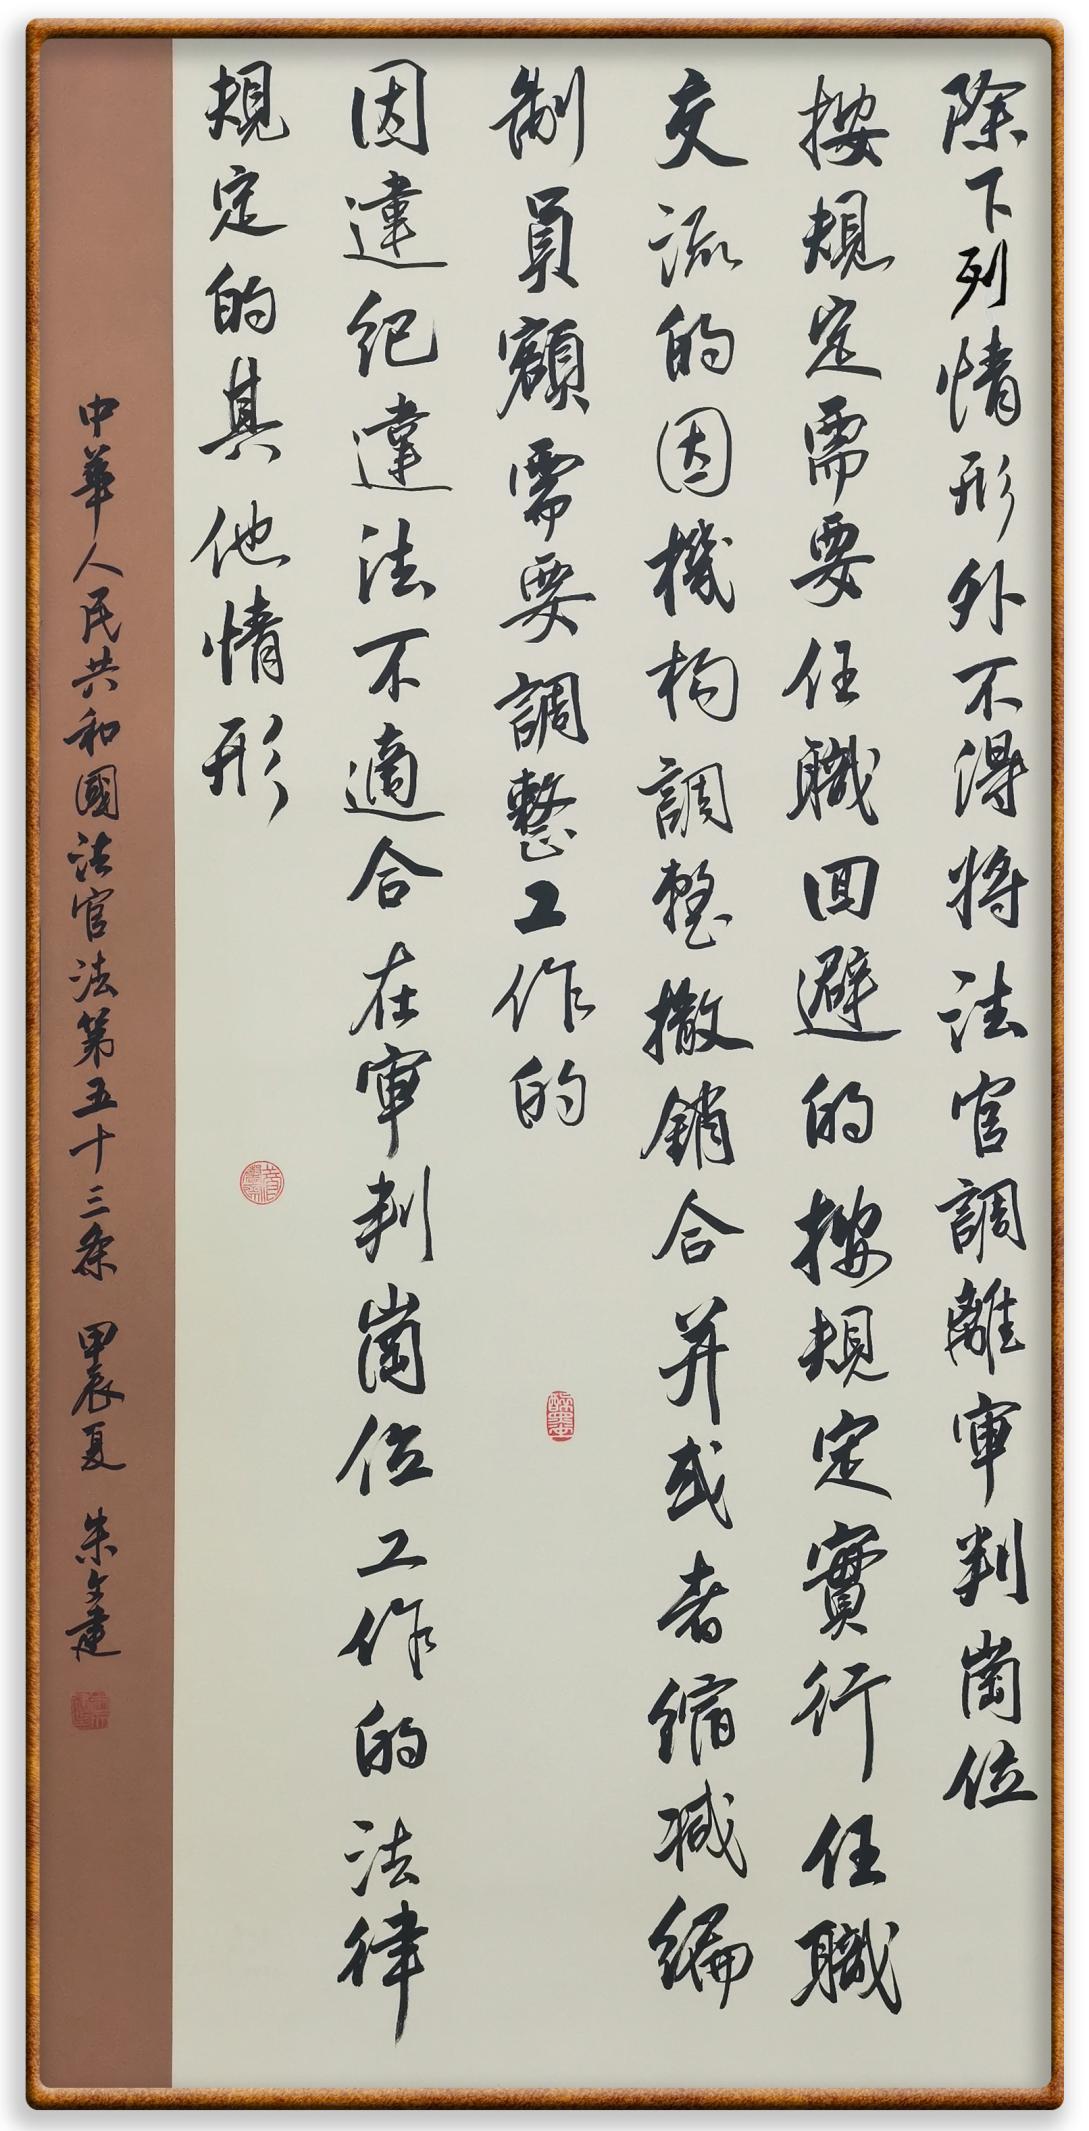 除下列情形外不得将法官調離審判崗位
按規定需要任職回避的按規定實行任職
交流的因機构調整撤銷合并或者縮减編
制員額需要調整工作的
因違紀違法不適合在審判崗位工作的法律
規定的其他情形
中華人民共和國法官法第五十三条 甲辰夏 朱文建